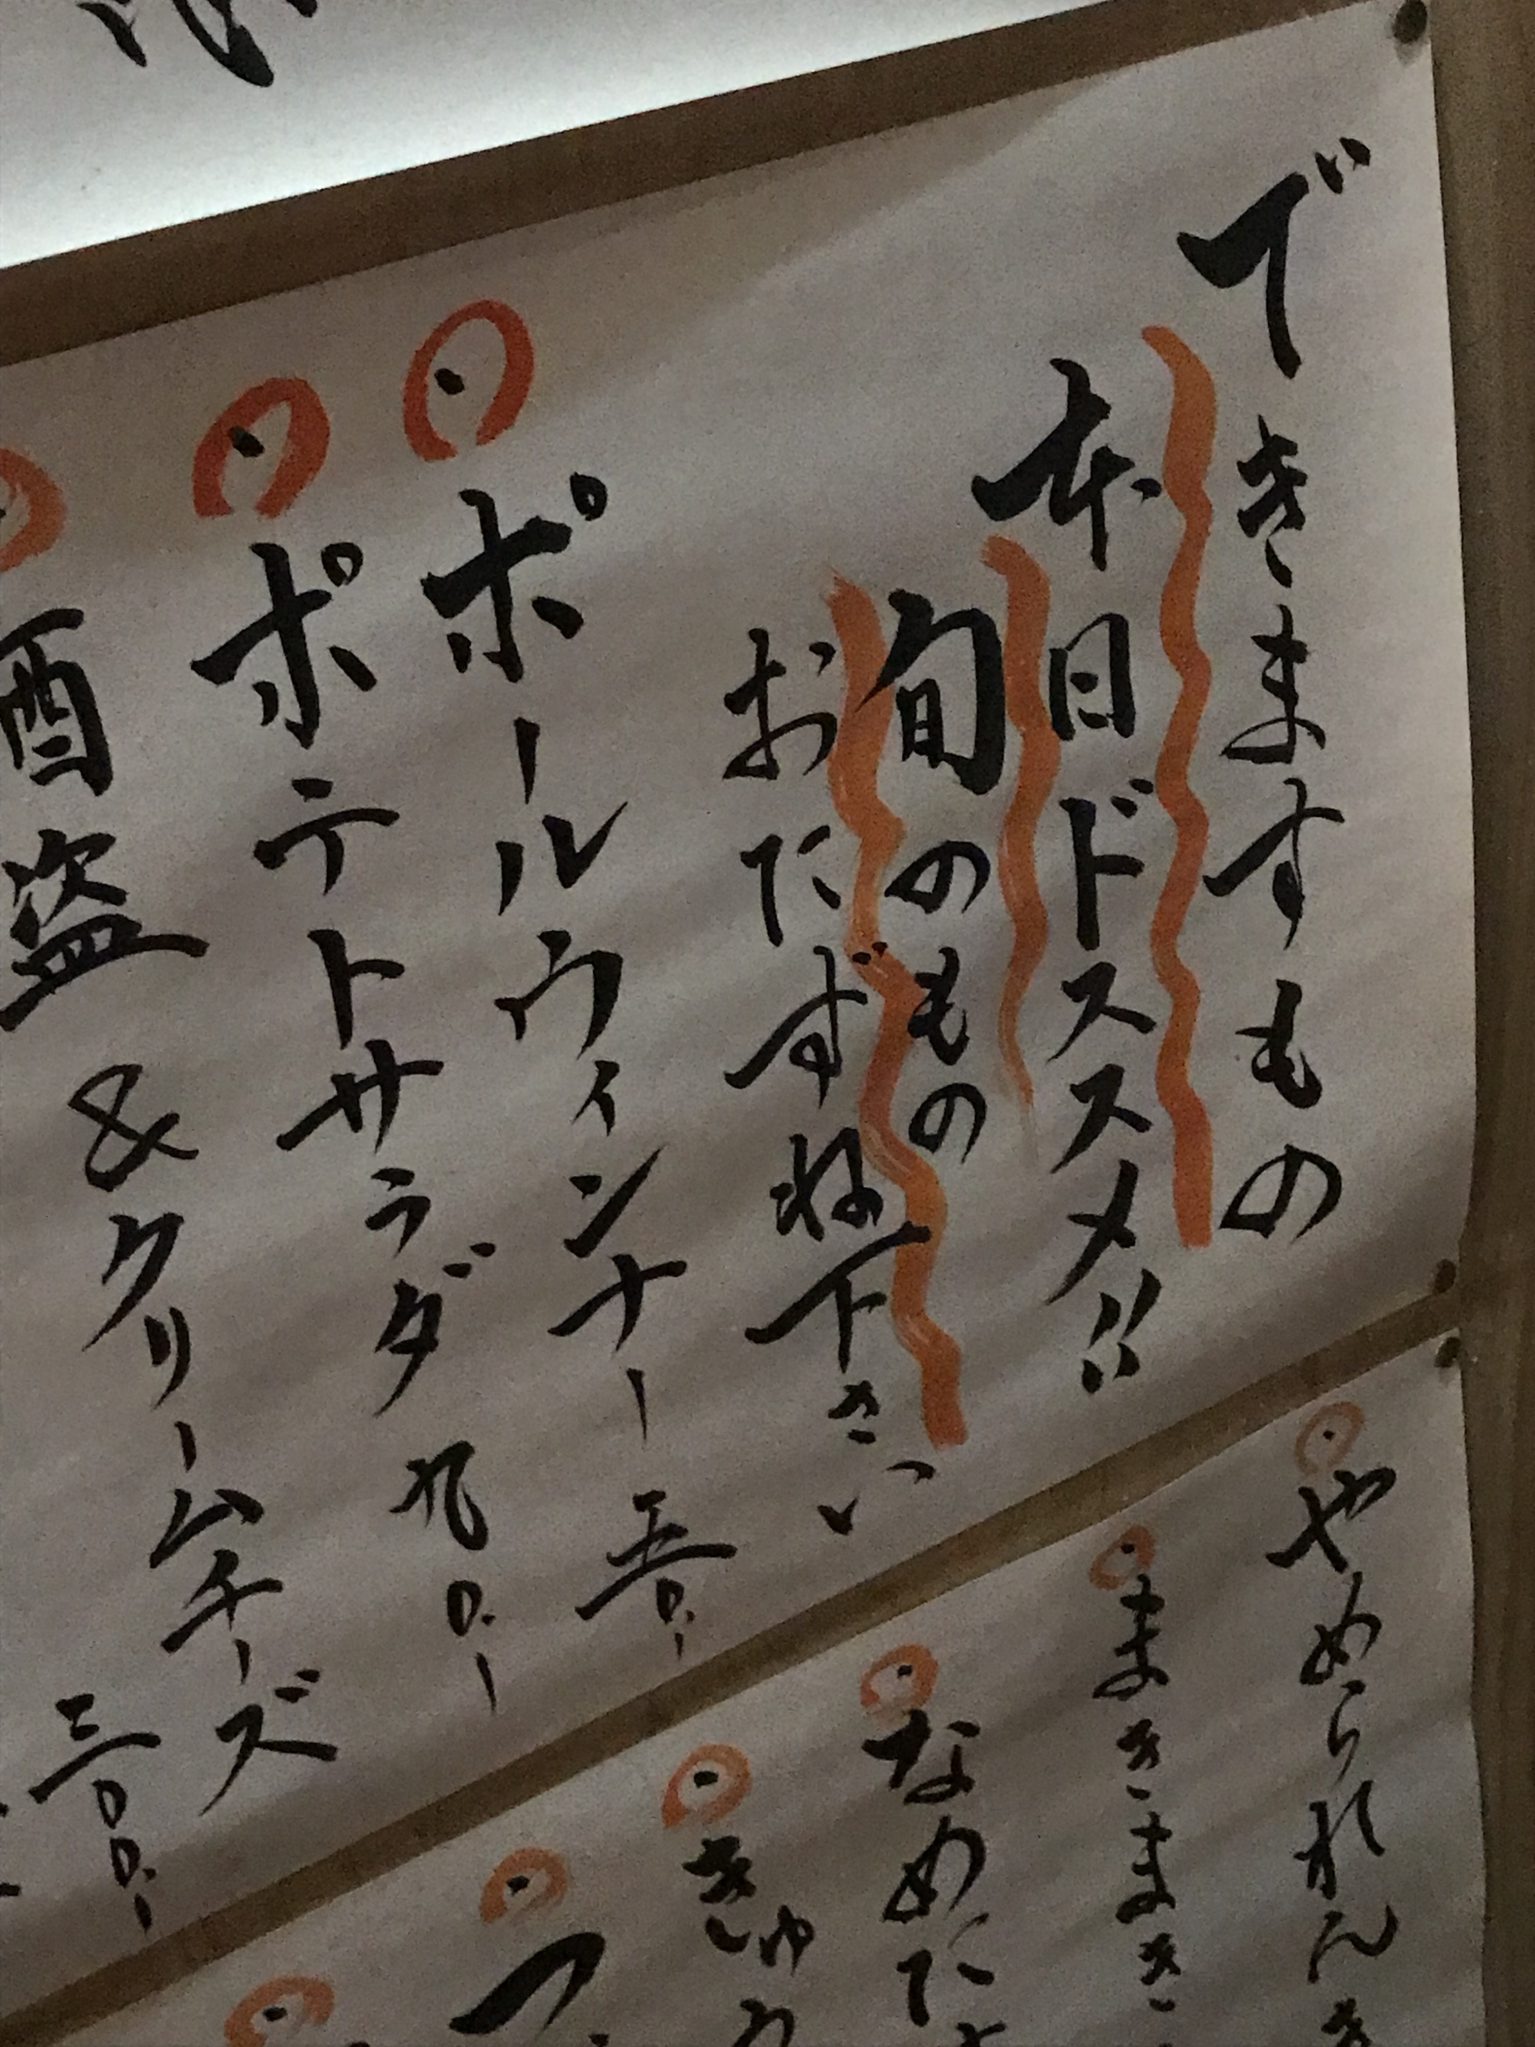 できますもの
本日ドススメ!!
旬のもの
おたずね下さい
ポールウィンナー 五〇.-
ポテトサラダ 九〇.-
酒盗&クリームチーズ
三〇〇.-
やめられんき
まきまき
なめた
きゅう